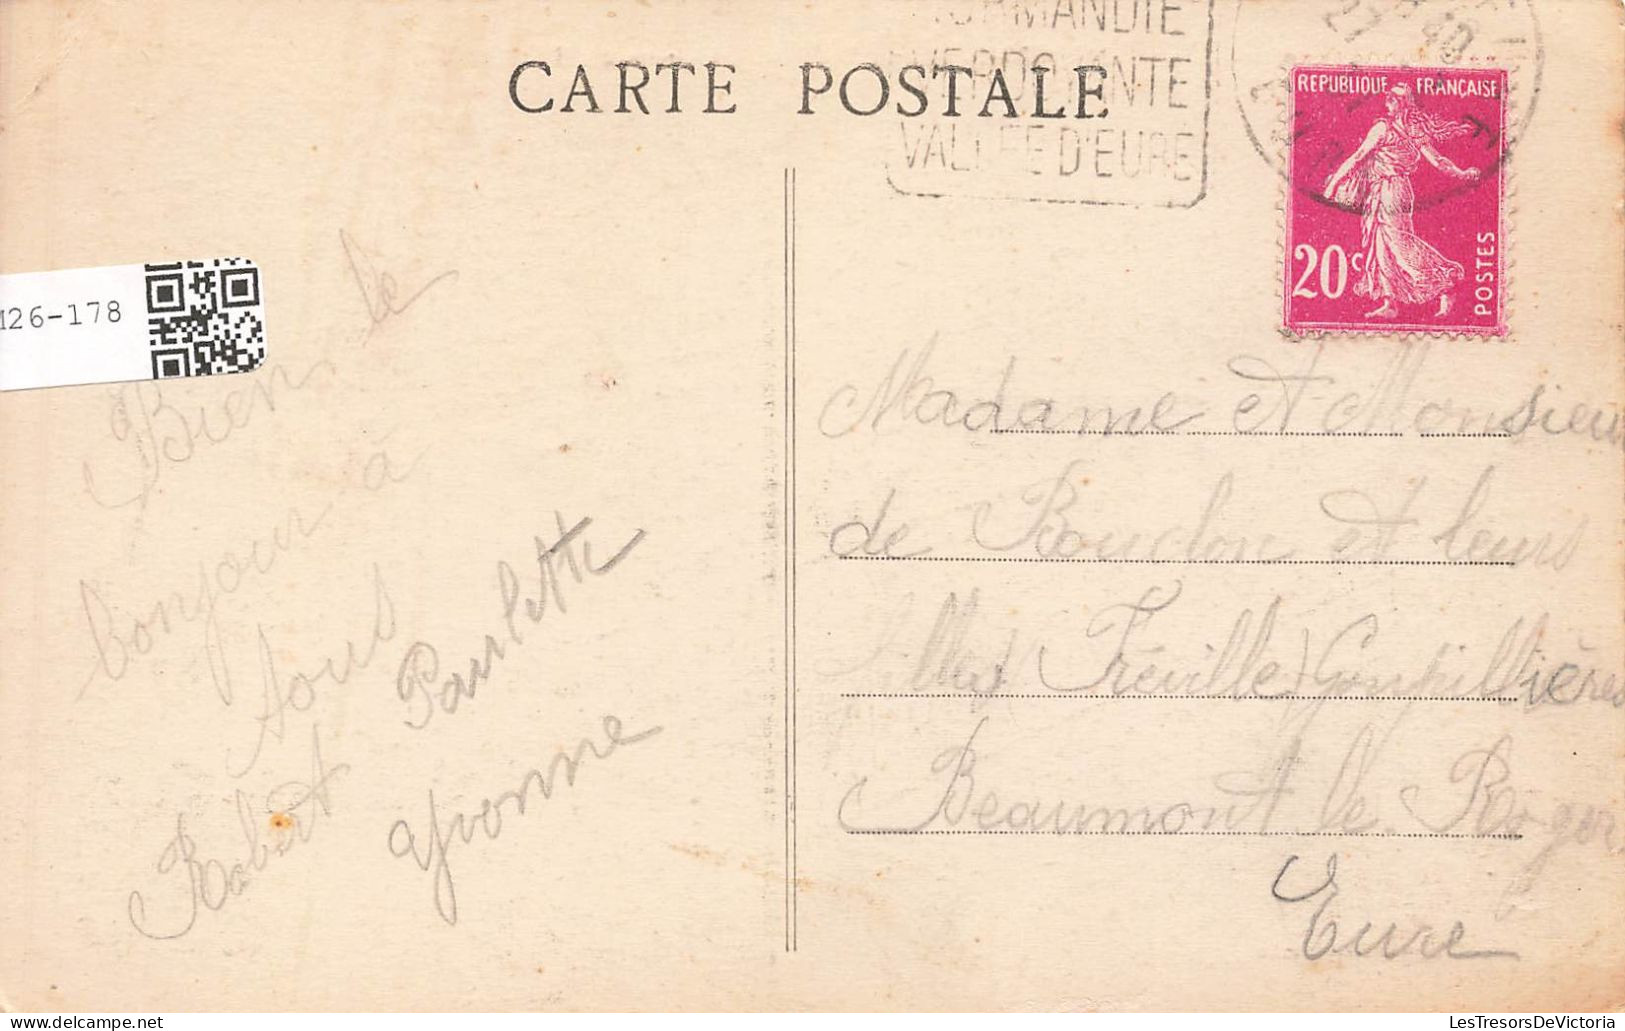 CARTE POSTALE
NORMANDIE
VERDOYANTE
VALLEE D'EURE
27
40
REPUBLIQUE FRANÇAISE
20c
POSTES
26-178
Bien le
bonjour a
tous
Robert Paulette
Yvonne
Madame et Monsieur
de Bouclon et leurs
filles Fréville Goupillières
Beaumont le Roger
Eure
LesTresorsDeVictoria